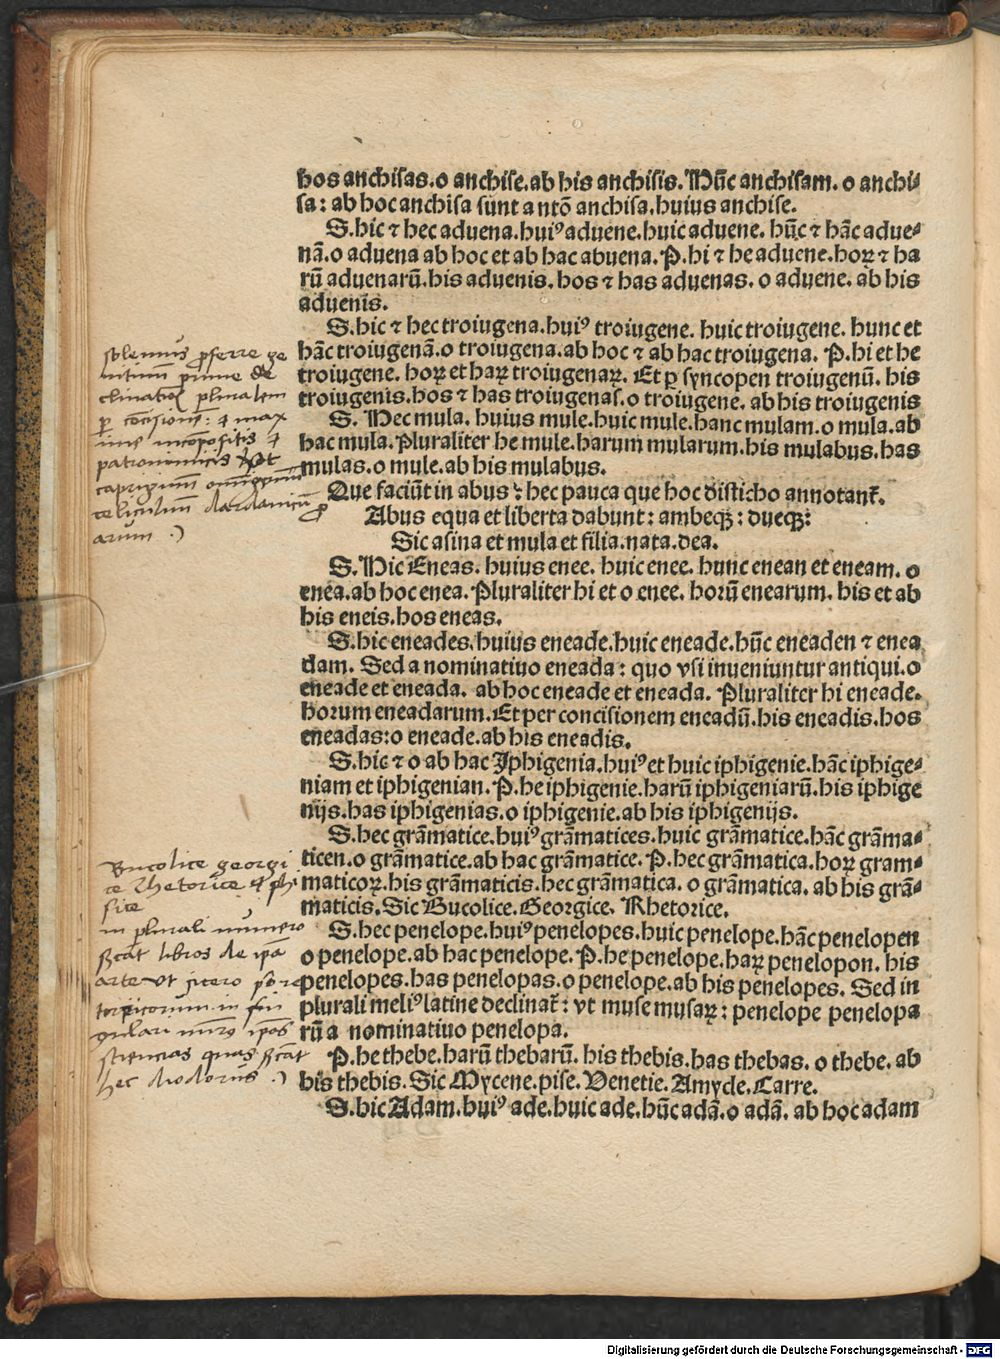 hos anchisas.o anchise.ab his anchisis. Hūc anchisam. o anchi⸗
sa: ab hoc anchisa sunt a ntō anchisa.huius anchise.
S.hic ⁊ hec aduena.huiꝰ aduene.huic aduene. hūc ⁊ hāc adue⸗
nā.o aduena ab hoc et ab hac abuena. P.hi ⁊ he aduene.hoꝝ ⁊ ha
rū aduenarū.his aduenis. hos ⁊ has aduenas. o aduene. ab his
aduenis.
S.hic ⁊ hec troiugena.huiꝰ troiugene. huic troiugene. hunc et
hāc troiugenā.o troiugena.ab hoc ⁊ ab hac troiugena. P.hi et he
troiugene. hoꝝ et haꝝ troiugenaꝝ. Et ꝑ syncopen troiugenū. his
troiugenis.hos ⁊ has troiugenas.o troiugene. ab his troiugenis
S. Hec mula. huius mule.huic mule.hanc mulam.o mula.ab
hac mula.Pluraliter he mule.harum mularum.his mulabus.has
mulas.o mule.ab his mulabus.
Que faciūt in abus : hec pauca que hoc disticho annotant̄.
Abus equa et liberta dabunt: ambeqꝫ: dueqꝫ:
Sic asina et mula et filia.nata.dea.
S.Hic Eneas. huius enee. huic enee. hunc enean et eneam. o
enea.ab hoc enea. Pluraliter hi et o enee. horū enearum. his et ab
his eneis.hos eneas.
S.hic eneades.huius eneade.huic eneade.hūc eneaden ⁊ enea
dam. Sed a nominatiuo eneada: quo vsi inueniuntur antiqui.o
eneade et eneada. ab hoc eneade et eneada. Pluraliter hi eneade.
horum eneadarum.Et per concisionem eneadū.his eneadis.hos
eneadas:o eneade.ab his eneadis.
S.hic ⁊ o ab hac Iphigenia.huiꝰ et huic iphigenie.hāc iphige⸗
niam et iphigenian. P.he iphigenie.harū iphigeniarū.his iphige
nijs.has iphigenias.o iphigenie.ab his iphigenijs.
S.hec grāmatice.huiꝰ grāmatices.huic grāmatice.hāc grāma⸗
ticen.o grāmatice.ab hac grāmatice. P.hec grāmatica.hoꝝ gram⸗
maticoꝝ.his grāmaticis.hec grāmatica. o grāmatica. ab his grā⸗
maticis.Sic Bucolice.Georgice. Rhetorice.
S.hec penelope.huiꝰ penelopes.huic penelope.hāc penelopen
o penelope.ab hac penelope. P.he penelope.haꝝ penelopon. his
penelopes.has penelopas.o penelope.ab his penelopes. Sed in
plurali meliꝰ latine declinat̄: vt muse musaꝝ: penelope penelopa
rū a nominatiuo penelopa.
P.he thebe.harū thebarū. his thebis.has thebas. o thebe. ab
his thebis.Sic Mycene.pise.Venetie.Amyde.Carre.
S.hic Adam.huiꝰ ade.huic ade.hūc adā.o adā. ab hoc adam
solemus ꝓferre ge
nitium prime de
clinatiōs pluralem
ꝑ cōcisionē: ⁊ max
ime incōpositis ⁊
patronimicis vt
caprigenum
celicolum dardanidum ꝓ
arum .)
Bucolice georgi
ce Rhetorice ⁊ phi
sice
in plurali numero
libros de ipā
arte vt cicero
in sin
gulari
sciencias quas
hec diodorus .)
Digitalisierung gefördert durch die Deutsche Forschungsgemeinschaft - DFG